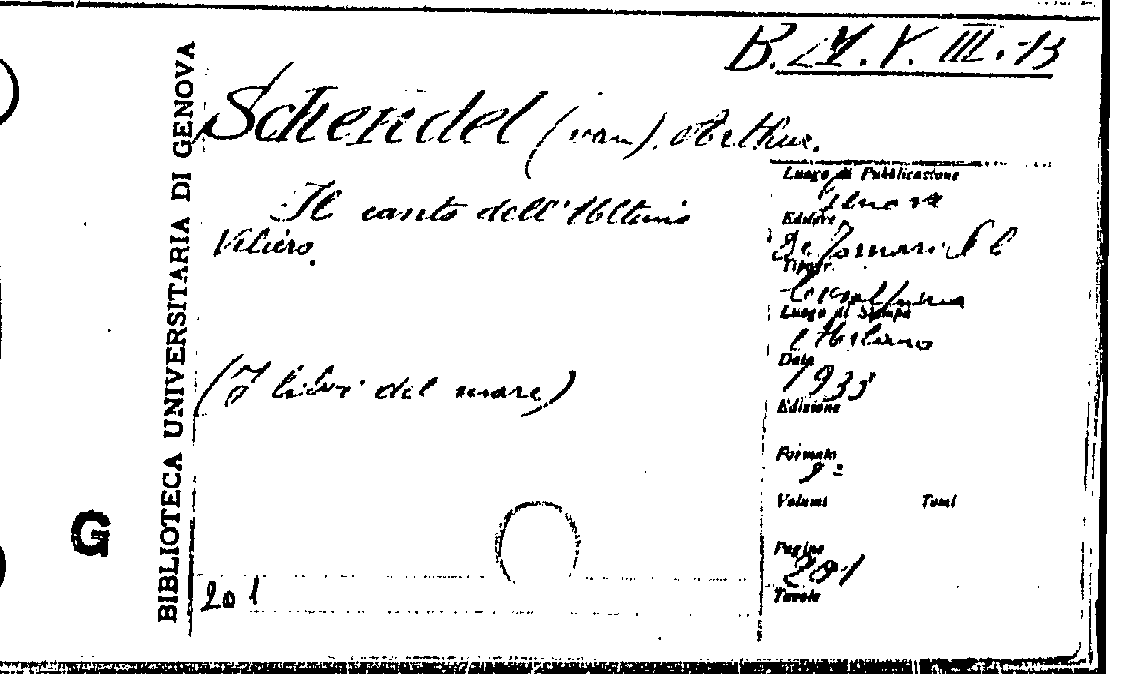 B. M. V. III. 13
BIBLIOTECA UNIVERSITARIA DI GENOVA
Schendel (van). Arthur.
Il canto dell'Ultimo
Veliero.
(I libri del mare)
201
G
Luogo di Pubblicazione
Genova
Editore
De
Tipogr.
Luogo di Stampa
Milano
Data
1933
Edizione
Formato
8º
Volumi Tomi
Pagine
201
Tavole